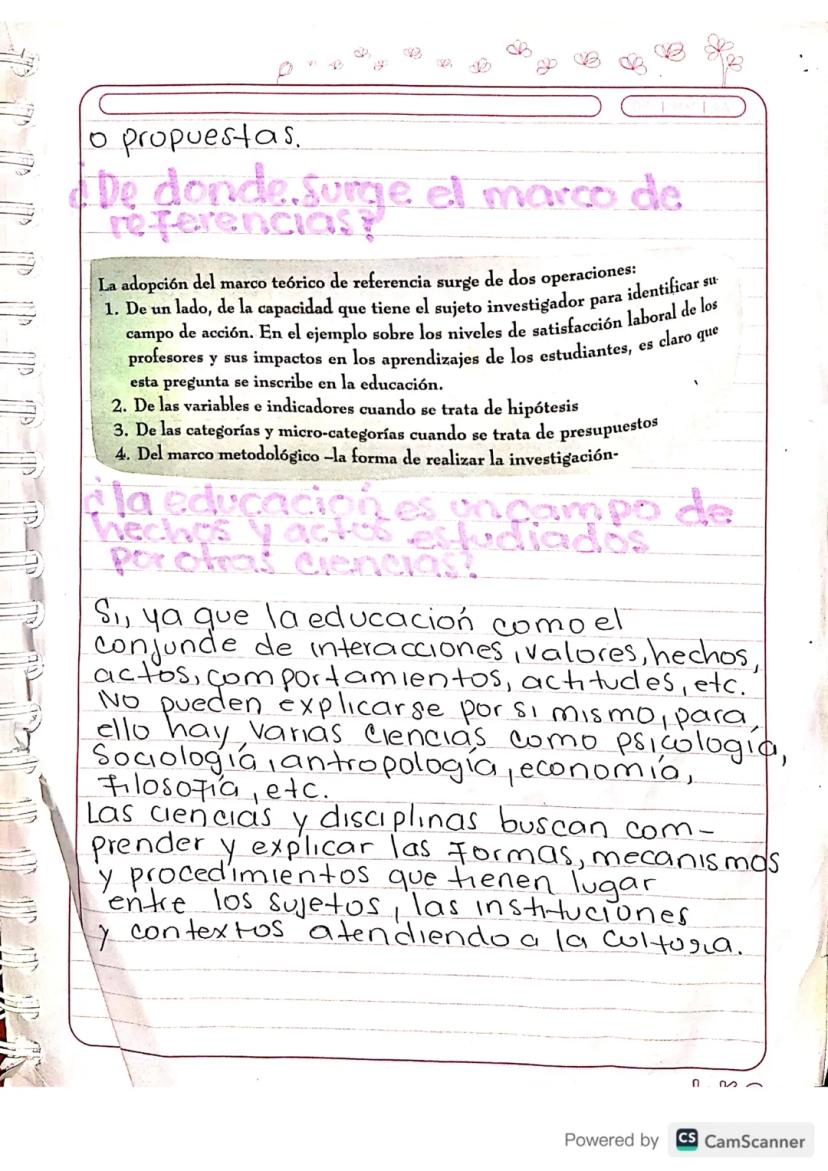 o propuestas.
¿De donde surge el marco de
referencias?
La adopción del marco teórico de referencia surge de dos operaciones:
1. De un lado, de la capacidad que tiene el sujeto investigador para identificar su
campo de acción. En el ejemplo sobre los niveles de satisfacción laboral de los
profesores y sus impactos en los aprendizajes de los estudiantes, es claro que
esta pregunta se inscribe en la educación.
2. De las variables e indicadores cuando se trata de hipótesis
3. De las categorías y micro-categorías cuando se trata de presupuestos
4. Del marco metodológico –la forma de realizar la investigación-
¿la educación es un campo de
hechos y actos estudiados
por otras ciencias?
Si, ya que la educación como el
conjunde de interacciones, valores, hechos,
actos, comportamientos, actitudes, etc.
No pueden explicarse por si mismo, para
ello hay varias ciencias como psicología,
Sociología, antropología, economía,
filosofía, etc.
Las ciencias y disciplinas buscan com-
prender y explicar las formas, mecanismos
y procedimientos que tienen lugar
entre los sujetos, las instituciones
y contextos atendiendo a la cultura.
Powered by CS CamScanner